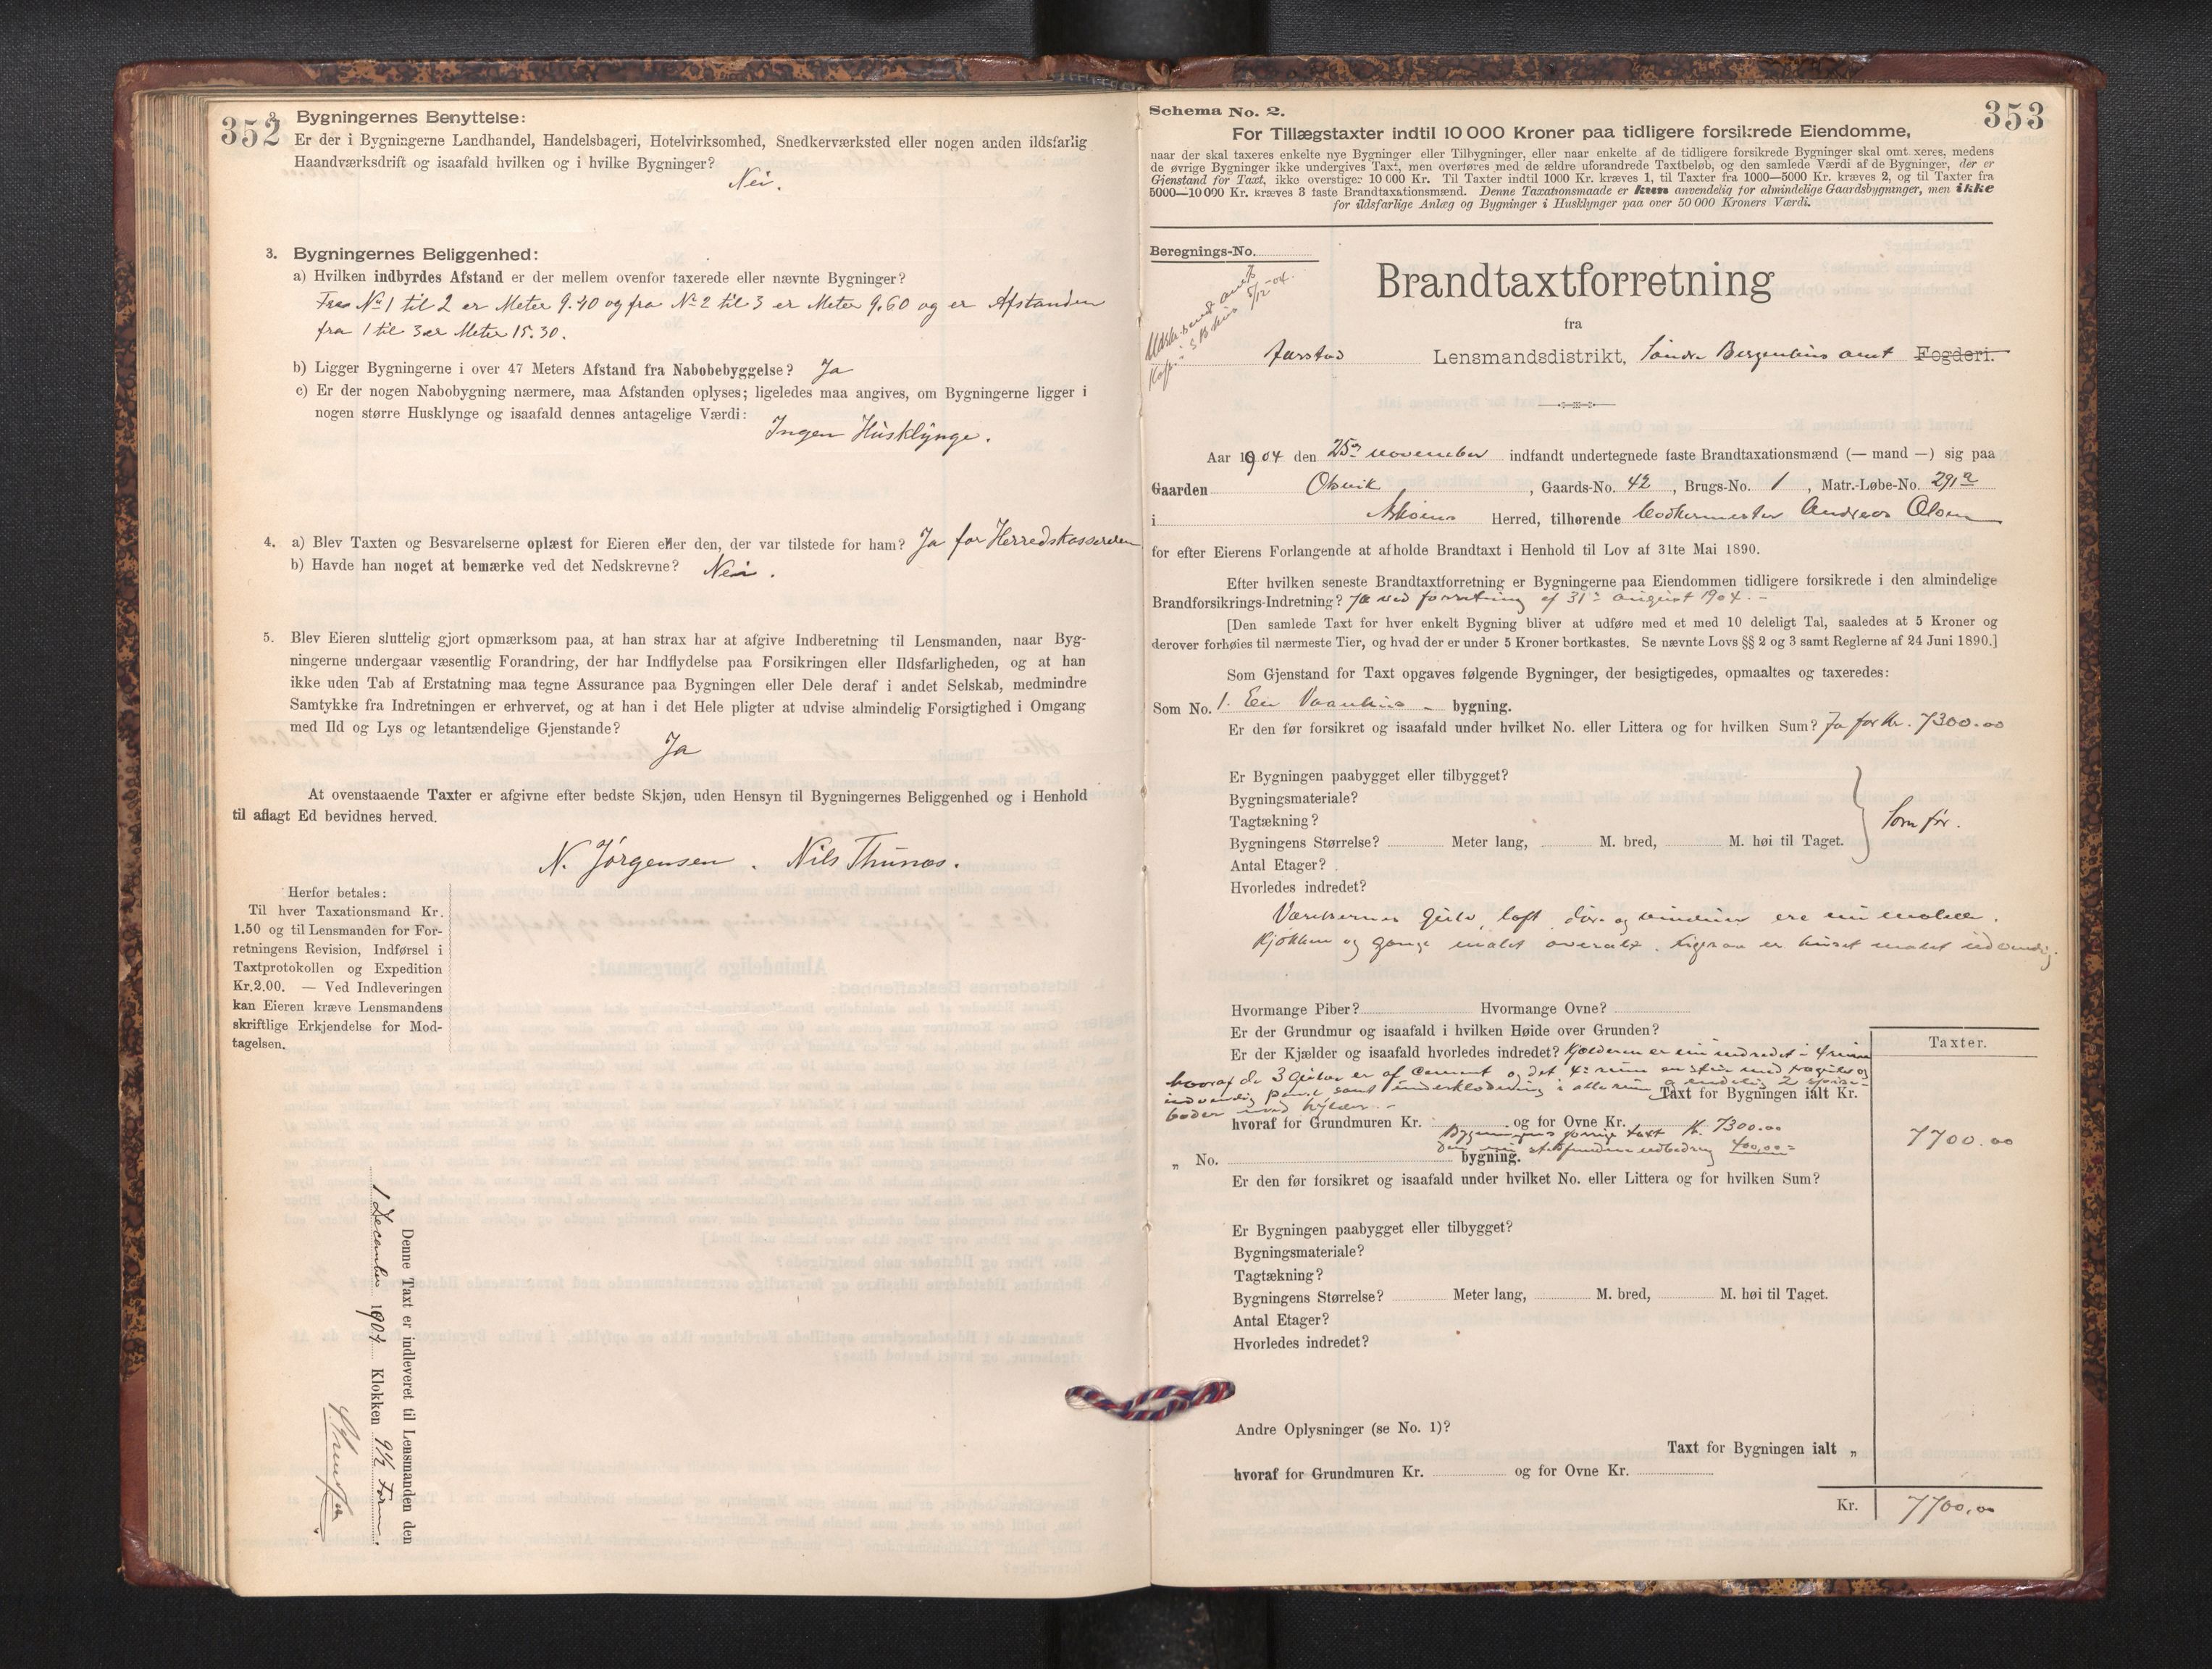 352
2. Bygningernes Benyttelse:
Er der i Bygningerne Landhandel, Handelsbageri, Hotelvirksomhed, Snedkerværksted eller nogen anden ildsfarlig
Haandværksdrift og isaafald hvilken og i hvilke Bygninger?
Nei.
3. Bygningernes Beliggenhed:
a) Hvilken indbyrdes Afstand er der mellem ovenfor taxerede eller nævnte Bygninger?
Fra No 1 til 2 er Meter 9.40 og fra No 2 til 3 er Meter 9.60 og er Afstanden
fra 1 til 3 er Meter 15.30.
b) Ligger Bygningerne i over 47 Meters Afstand fra Nabobebyggelse? Ja
c) Er der nogen Nabobygning nærmere, maa Afstanden oplyses; ligeledes maa angives, om Bygningerne ligger i
nogen større Husklynge og isaafald dennes antagelige Værdi:
Ingen Husklynge.
4. a) Blev Taxten og Besvarelserne oplæst for Eieren eller den, der var tilstede for ham? Ja for Herredskassereren
b) Havde han noget at bemærke ved det Nedskrevne? Nei.
5. Blev Eieren sluttelig gjort opmærksom paa, at han strax har at afgive Indberetning til Lensmanden, naar Byg-
ningerne undergaar væsentlig Forandring, der har Indflydelse paa Forsikringen eller Ildsfarligheden, og at han
ikke uden Tab af Erstatning maa tegne Assurance paa Bygningen eller Dele deraf i andet Selskab, medmindre
Samtykke fra Indretningen er erhvervet, og at han i det Hele pligter at udvise almindelig Forsigtighed i Omgang
med Ild og Lys og letantændelige Gjenstande?
Ja
At ovenstaaende Taxter er afgivne efter bedste Skjøn, uden Hensyn til Bygningernes Beliggenhed og i Henhold
til aflagt Ed bevidnes herved.
N. Jørgensen. Nils Thunæs.
Herfor betales:
Til hver Taxationsmand Kr.
1.50 og til Lensmanden for For-
retningens Revision, Indførsel i
Taxtprotokollen og Expedition
Kr.2.00. — Ved Indleveringen
kan Eieren kræve Lensmandens
skriftlige Erkjendelse for Mod-
tagelsen.
Denne Taxt er indleveret til Lensmanden den
1 December 1904 Klokken 9½ Form.
353
Schema No. 2.
For Tillægstaxter indtil 10 000 Kroner paa tidligere forsikrede Eiendomme,
naar der skal taxeres enkelte nye Bygninger eller Tilbygninger, eller naar enkelte af de tidligere forsikrede Bygninger skal omtaxeres, medens
de øvrige Bygninger ikke undergives Taxt, men overføres med de ældre uforandrede Taxtbeløb, og den samlede Værdi af de Bygninger, der er
Gjenstand for Taxt, ikke overstiger 10 000 Kr. Til Taxter indtil 1000 Kr. kræves 1, til Taxter fra 1000—5000 Kr. kræves 2, og til Taxter fra
5000—10 000 Kr. kræves 3 faste Brandtaxationsmænd. Denne Taxationsmaade er kun anvendelig for almindelige Gaardsbygninger, men ikke
for ildsfarlige Anlæg og Bygninger i Husklynger paa over 50 000 Kroners Værdi.
Beregnings-No.
5/12-04.
Brandtaxtforretning
fra
Aarstad Lensmandsdistrikt, Søndre Bergenhus amt Fogderi.
Aar 1904 den 25de november indfandt undertegnede faste Brandtaxationsmænd (— mand —) sig paa
Gaarden Olsvik, Gaards-No. 42, Brugs-No. 1, Matr.-Løbe-No. 291a
i Askøens Herred, tilhørende Andreas Olsen
for efter Eierens Forlangende at afholde Brandtaxt i Henhold til Lov af 31te Mai 1890.
Efter hvilken seneste Brandtaxtforretning er Bygningerne paa Eiendommen tidligere forsikrede i den almindelige
Brandforsikrings-Indretning? Ja ved forretning af 31te august 1904. -
[Den samlede Taxt for hver enkelt Bygning bliver at udføre med et med 10 deleligt Tal, saaledes at 5 Kroner og
derover forhøies til nærmeste Tier, og hvad der er under 5 Kroner bortkastes. Se nævnte Lovs §§ 2 og 3 samt Reglerne af 24 Juni 1890.]
Som Gjenstand for Taxt opgaves følgende Bygninger, der besigtigedes, opmaaltes og taxeredes:
Som No. 1. En Vaanhus - bygning.
Er den før forsikret og isaafald under hvilket No. eller Littera og for hvilken Sum? Ja for Kr. 7300.00
Er Bygningen paabygget eller tilbygget?
Bygningsmateriale?
Tagtækning?
Bygningens Størrelse? Meter lang, M. bred, M. høi til Taget.
Som før.
Antal Etager?
Hvorledes indredet?
Værelsernes gulv, loft, døre og vinduer ere nu malede.
Kjøkken og gange malet overalt. Ligesaa er huset malet udvendig.
Hvormange Piber? Hvormange Ovne?
Er der Grundmur og isaafald i hvilken Høide over Grunden?
Er der Kjælder og isaafald hvorledes indredet? Kjælderen er nu indredet i 4 rum
hvoraf de 3 gulve er af cement og det 4de rum
indvendig panel, samt underklædning i alle rum
boder med hylder. -
Taxter.
Taxt for Bygningen ialt Kr. 7700.00
hvoraf for Grundmuren Kr. og for Ovne Kr.
Bygningens forrige taxt Kr. 7300.00
Den nu stedfundne udbedring 400,00
„ No. bygning.
Er den før forsikret og isaafald under hvilket No. eller Littera og for hvilken Sum?
Er Bygningen paabygget eller tilbygget?
Bygningsmateriale?
Tagtækning?
Bygningens Størrelse? Meter lang, M. bred, M. høi til Taget.
Antal Etager?
Hvorledes indredet?
Andre Oplysninger (se No. 1)?
Taxt for Bygningen ialt „
hvoraf for Grundmuren Kr. og for Ovne Kr.
Kr. 7700,00